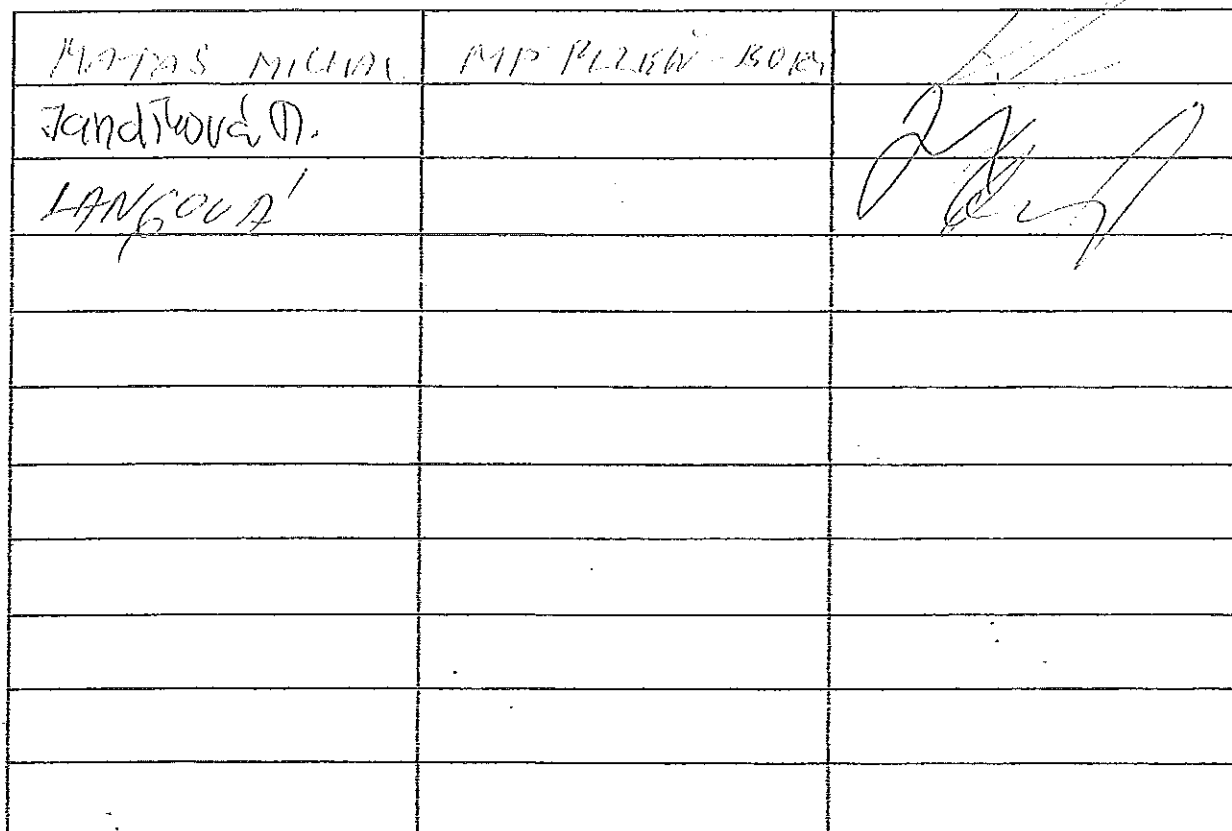 MATAS MICHAL MP PLZEŇ - BORY
Jandíková M.
LANGOVÁ